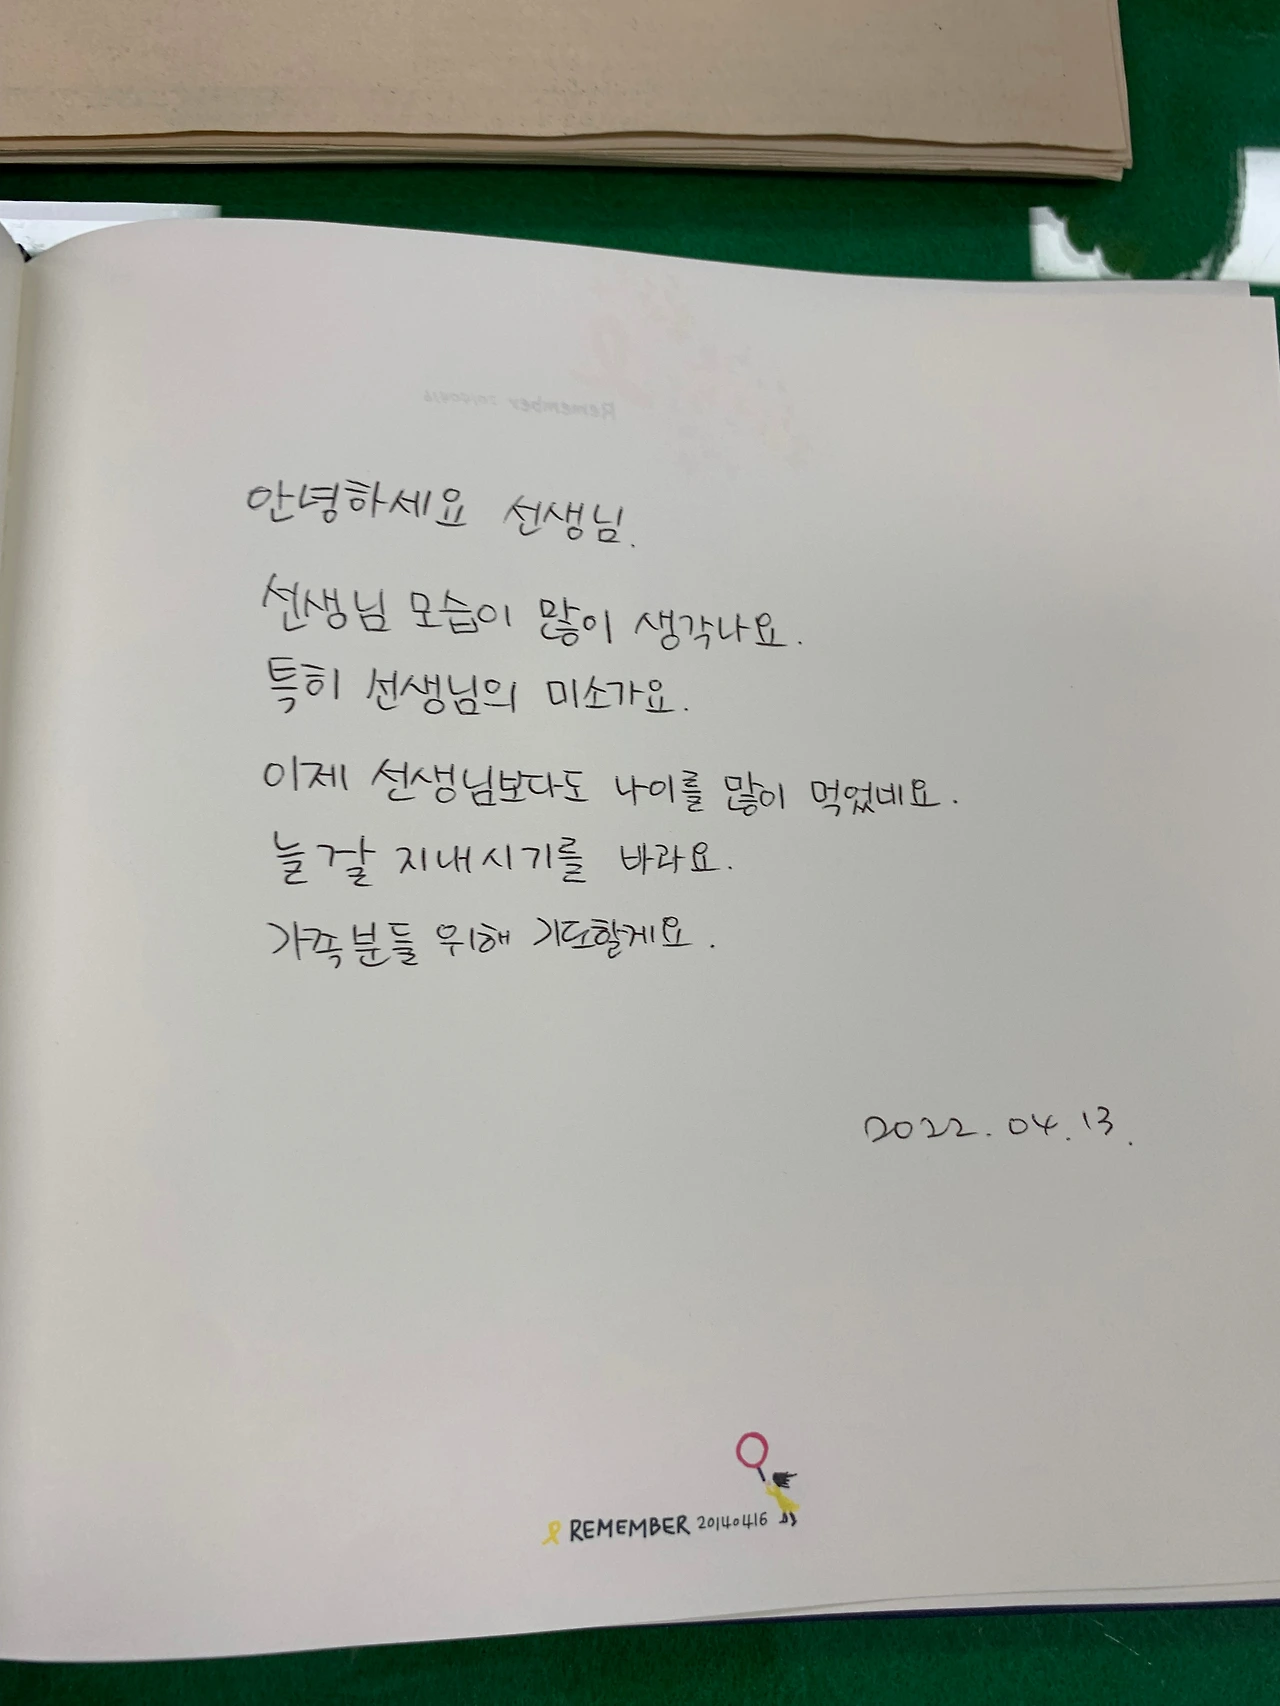 Remember 20140416
안녕하세요 선생님.
선생님 모습이 많이 생각나요.
특히 선생님의 미소가요.
이제 선생님보다도 나이를 많이 먹었네요.
늘 잘 지내시기를 바라요.
가족분들 위해 기도할게요.
2022. 04. 13.
REMEMBER 20140416